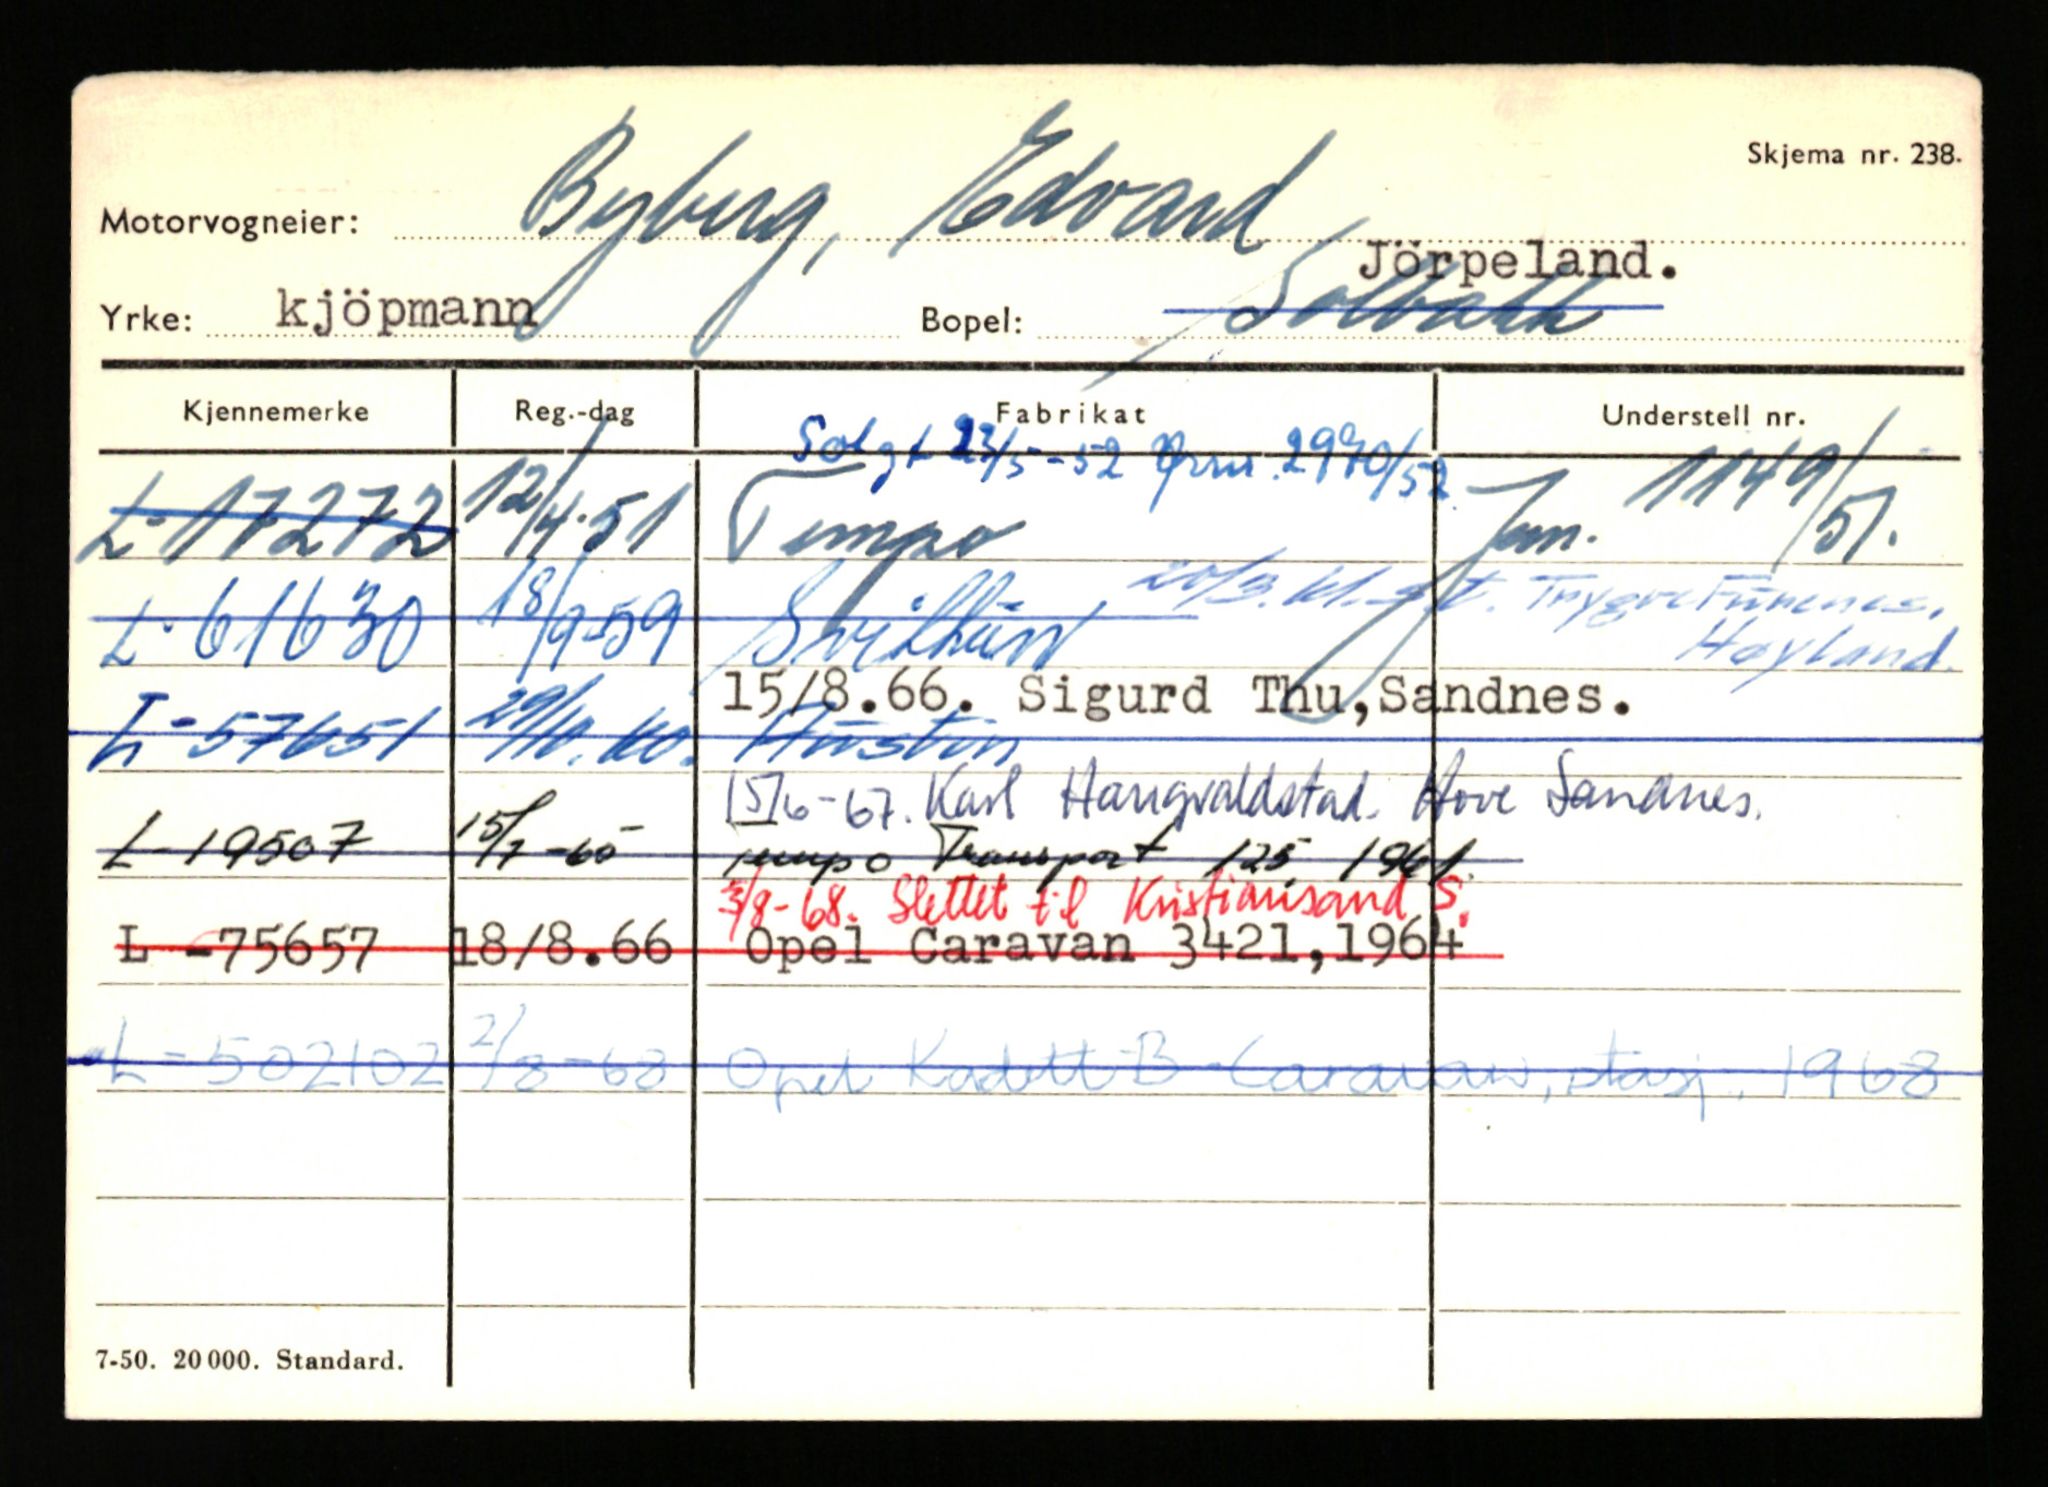 Skjema nr. 238.
Motorvogneier: Byberg, Edvard
Jörpeland.
Yrke: kjöpmann Bopel: Solbakk
Kjennemerke Reg.-dag Fabrikat Understell nr.
Solgt 23/5-52 2970/52
L-17272 12/4-51 Tempo Jnr. 1149/51.
20/3.61. Trygve
L-61630 18/9-59 Svithun Høyland.
15/8.66. Sigurd Thu, Sandnes.
L-57651 29/10.60. Austin
15/6-67. Karl Haugvaldstad. Hove Sandnes.
L-19507 15/7-65 Tempo Transport 125, 1961.
3/8-68. Slettet til Kristiansand S.
L -75657 18/8.66 Opel Caravan 3421,1964
L-502102 2/8-68 Opel Kadett-B-Caravan, stasj. 1968
7-50. 20 000. Standard.